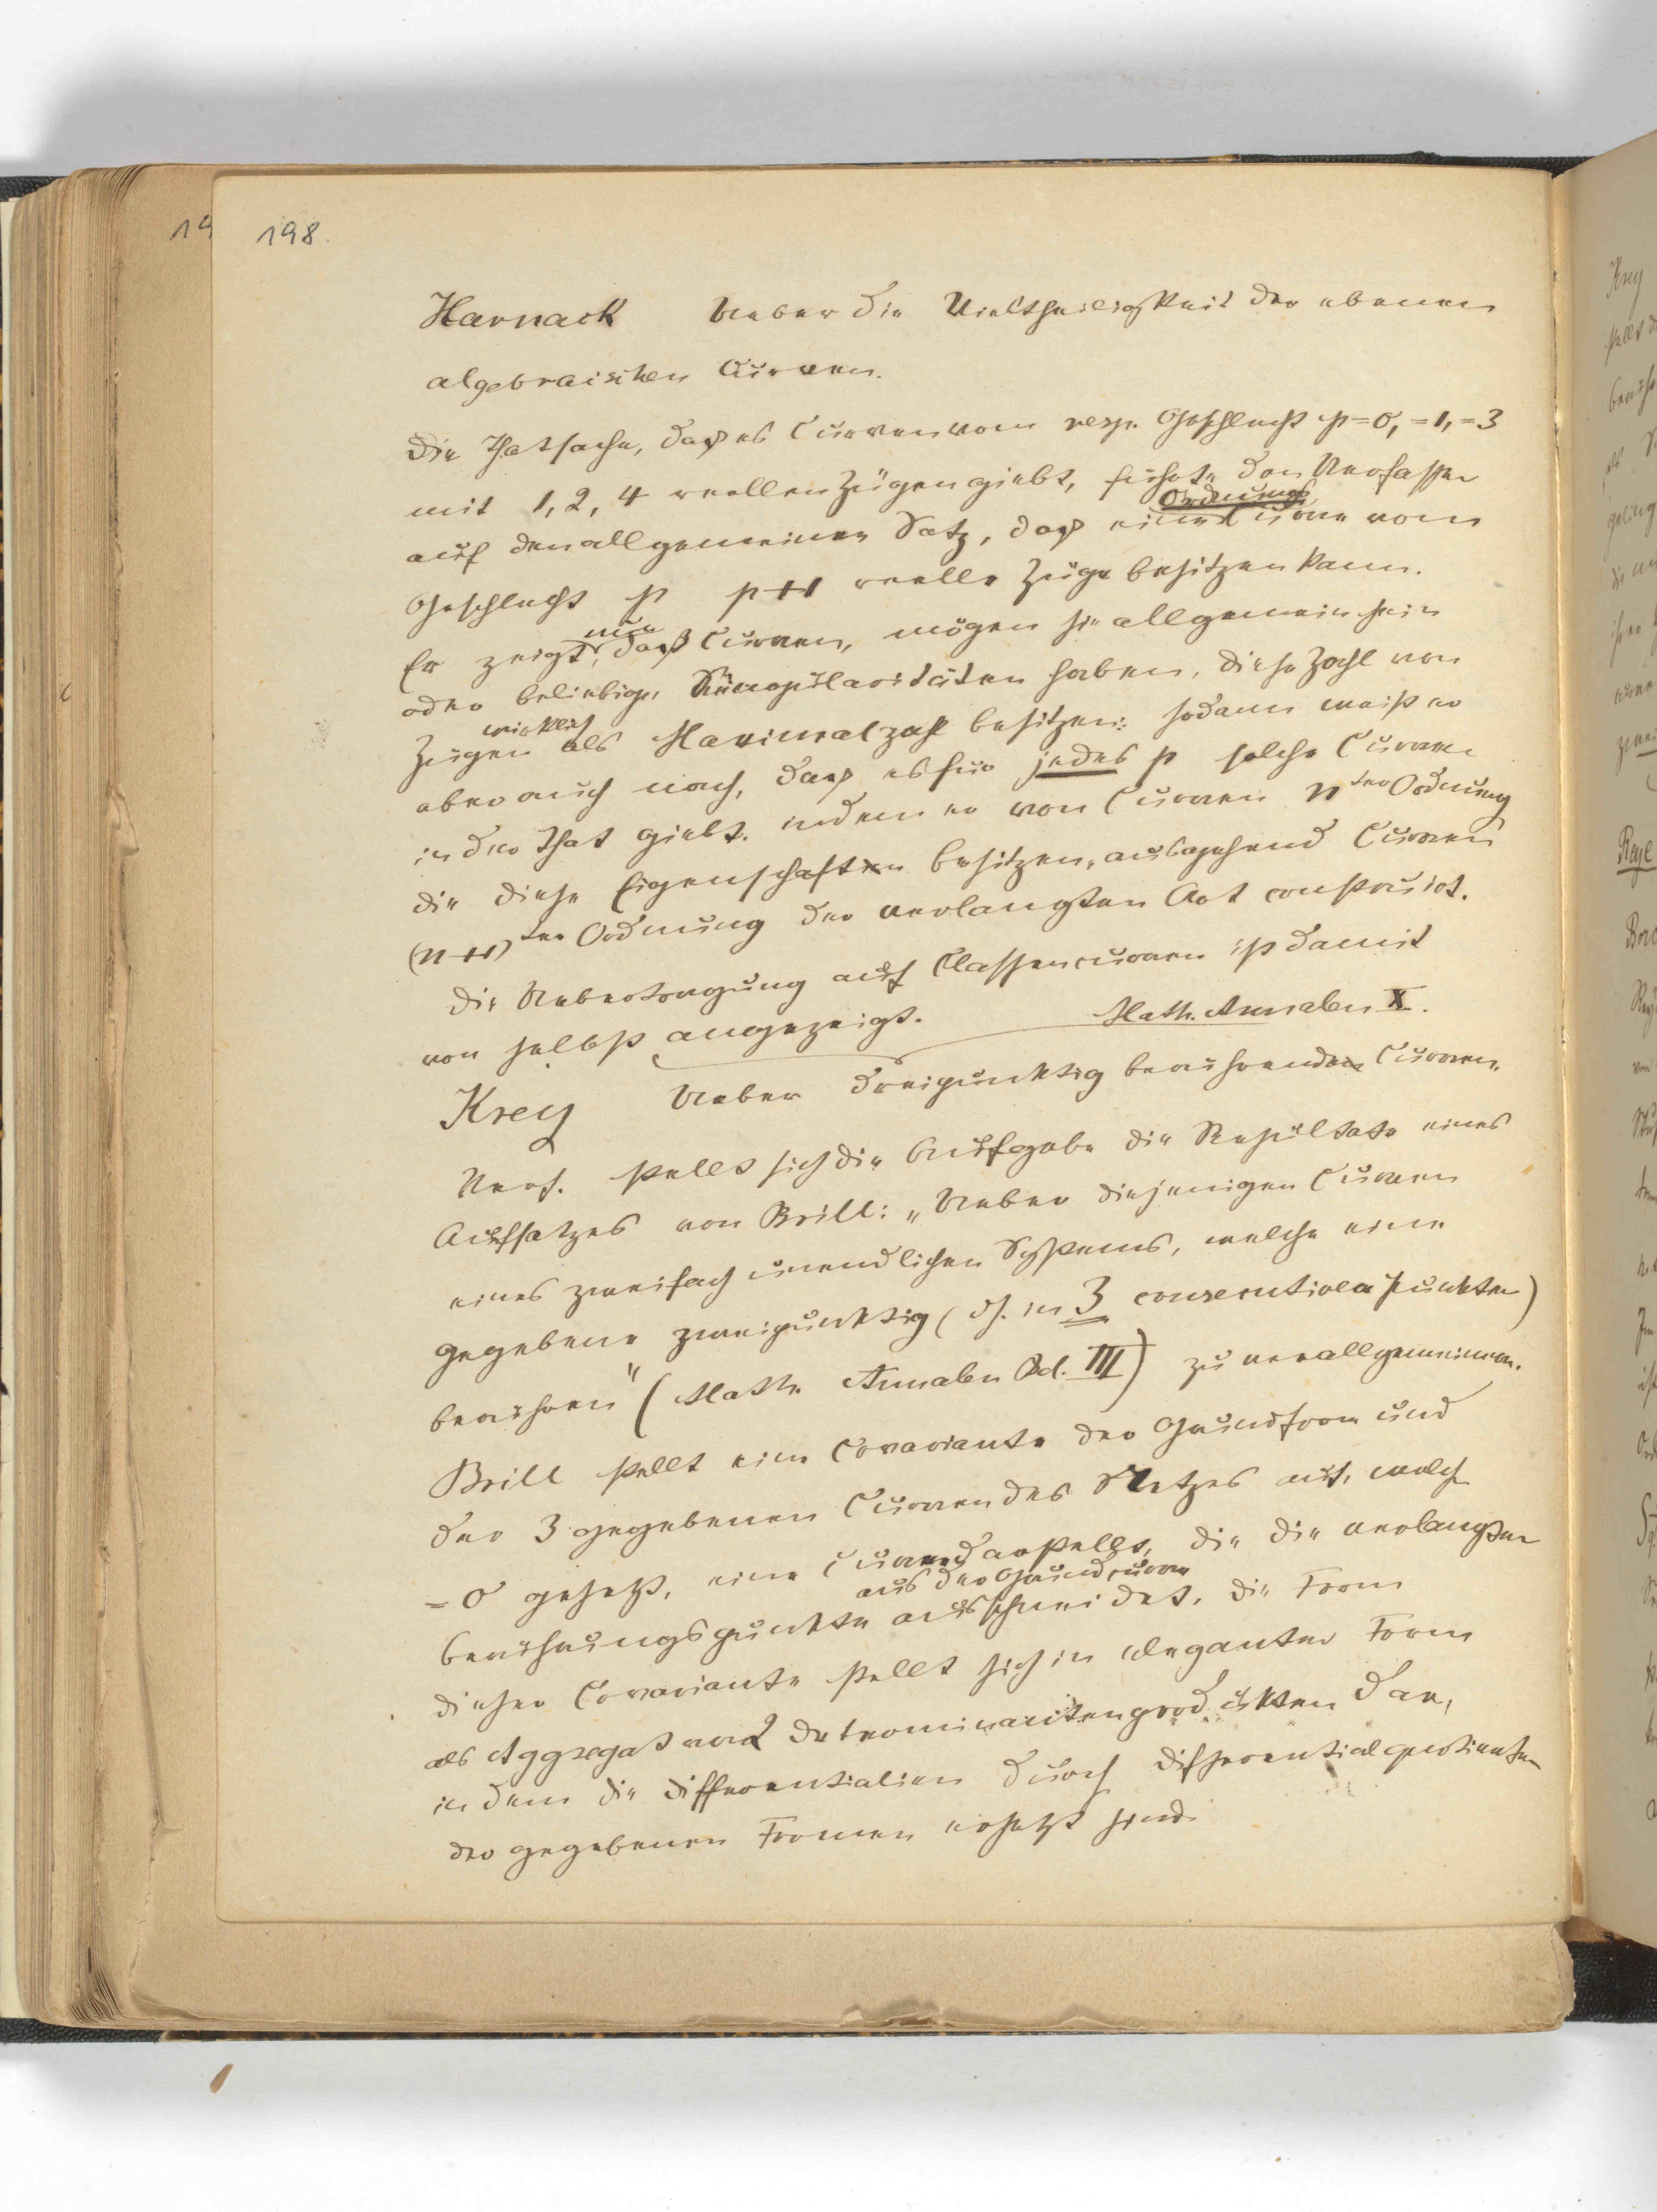 198.
19
Harnack Ueber die Vieltheiligkeit der ebenen
algebraischen Curven.
Die Thatsache, daß es Curven vom resp. Geschlecht p=0, =1, =3
mit 1, 2, 4 reellen Zügen giebt, führte den Verfasser
auf den allgemeinen Satz, daß eine Ordnungscurve vom
Geschlecht p p+1 reelle Züge besitzen kann.
Er zeigt nun, daß Curven, mögen sie allgemein sein
oder beliebige Singularitäten haben, diese Zahl von
Zügen wirklich als Maximalzahl besitzen; sodann weist er
aber auch nach, daß es für jedes p solche Curven
in der That giebt. indem er von Curven nter Ordnung
die diese Eigenschaften besitzen, ausgehend Curven
(n+1)ter Ordnung der verlangten Art construirt.
Die Uebertragung auf Classencurven ist damit
von selbst angezeigt. Math. Annalen X.
Krey Ueber dreipunktig berührende Curven.
Verf. stellt sich die Aufgabe die Resultate eines
Aufsatzes von Brill: „Ueber diejenigen Curven
eines zweifach unendlichen Systems, welche eine
gegebene zweipunktig (dh. in 3 consecutiven Punkten)
berühren" (Math. Annalen Bd. III) zu verallgemeinern.
Brill stellt eine Covariante der Grundform und
der 3 gegebenen Curven des Netzes auf, welche
=0 gesetzt, eine Curve darstellt, die die verlangten
Berührungspunkte aus der Grundcurve ausschneidet. Die Form
dieser Covariante stellt sich in eleganter Form
als Aggregat von 2 Determinantenprodukten dar,
in denen die Differentialien durch Differentialquotienten
der gegebenen Formen ersetzt sind.